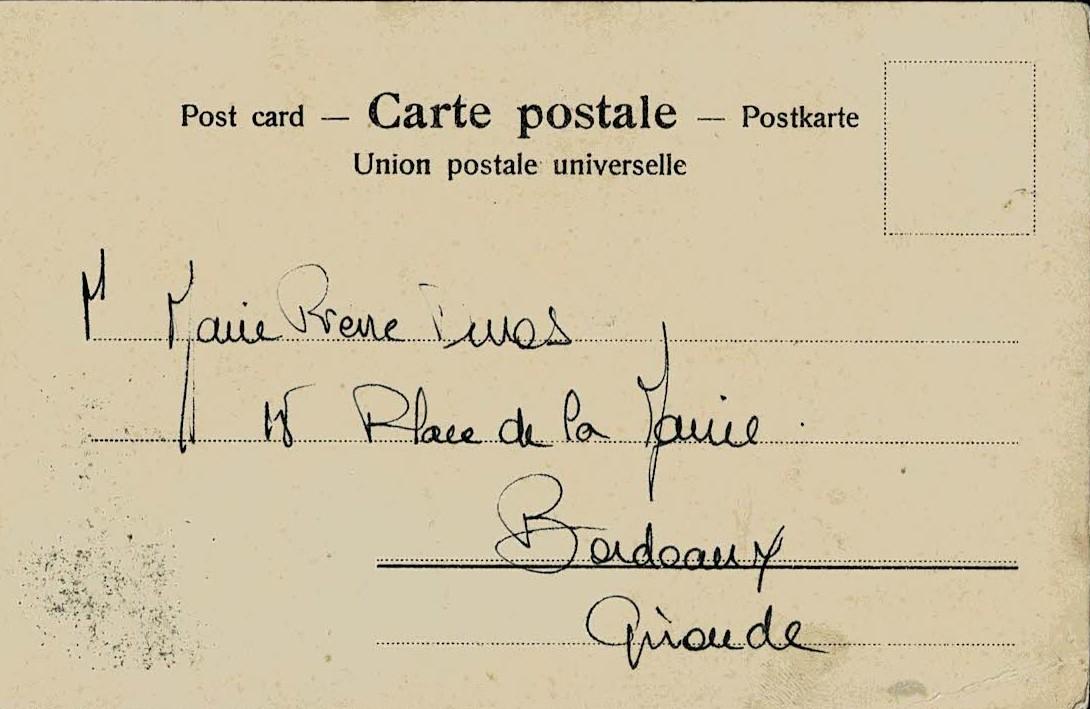 Post card — Carte postale — Postkarte
Union postale universelle
M Marie Pierre Dumas
15 Place de la Mairie
Bordeaux
Gironde